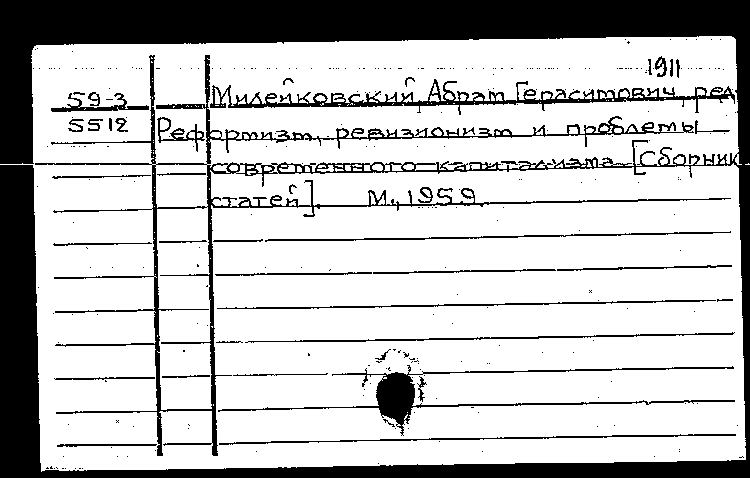 1911
59-3 Милейковский, Абрам Герасимович, ред.
5512 Реформизм, ревизионизм и проблемы
современного капитализма. [Сборник
статей]. М., 1959.